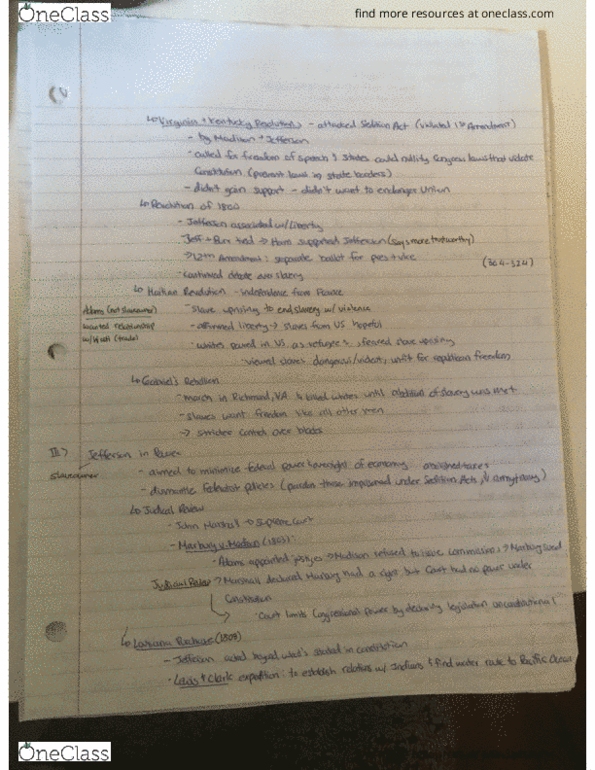 OneClass
find more resources at oneclass.com
↳ Virginia + Kentucky Resolutions - attacked Sedition Act (violated 1st Amendment)
- by Madison + Jefferson
- called for freedom of speech & states could nullify Congress laws that violate
Constitution (prevent laws in state borders)
- didn't gain support - didn't want to endanger Union
↳ Revolution of 1800
- Jefferson associated w/ liberty
Jeff + Burr tied → Ham supported Jefferson (says more trustworthy)
→ 12th Amendment: separate ballot for pres + vice
(304-324)
- continued debate over slavery
↳ Haitian Revolution - independence from France
Adams (not slaveowner)
- slave uprising to end slavery w/ violence
wanted relationship
- affirmed liberty → slaves from US hopeful
w/ Haiti (trade)
- whites poured in US as refugees, feared slave uprising
- viewed slaves dangerous/violent, unfit for republican freedom
↳ Gabriel's Rebellion
- march in Richmond, VA & killed whites until abolition of slavery was met
- slaves want freedom like all other men
→ stricter control over blacks
III) Jefferson in Power
slaveowner
- aimed to minimize federal power & oversight of economy abolished taxes
- dismantle federalist policies (pardon those imprisoned under Sedition Acts, ↓ army + navy)
↳ Judicial Review
- John Marshall → Supreme Court
- Marbury v. Madison (1803):
- Adams appointed justices → Madison refused to issue commissions → Marbury sued
Judicial Review → Marshall declared Marbury had a right but Court had no power under
Constitution
- Court limits Congressional power by declaring legislation unconstitutional
↳ Louisiana Purchase (1803)
- Jefferson acted beyond what's stated in constitution
- Lewis + Clark expedition: to establish relations w/ Indians & find water route to Pacific Ocean
OneClass
find more resources at oneclass.com